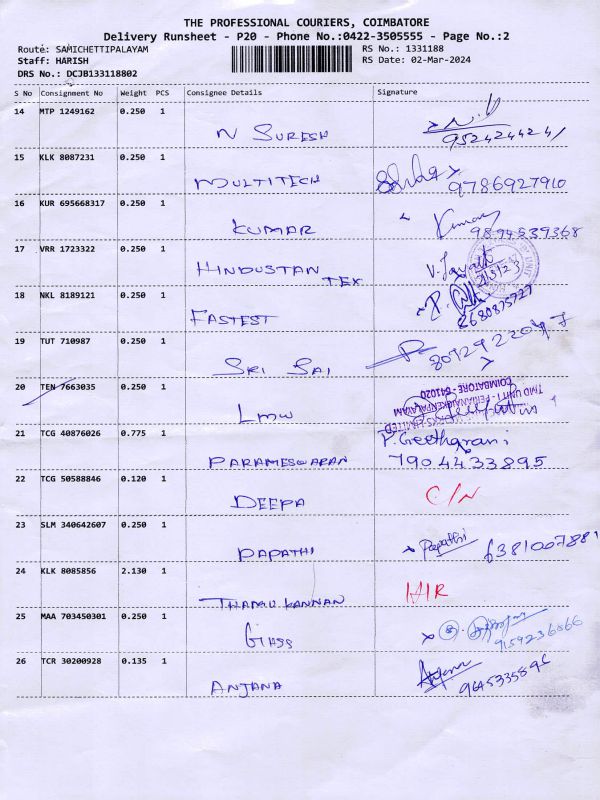 THE PROFESSIONAL COURIERS, COIMBATORE
Delivery Runsheet - P20 - Phone No.:0422-3505555 - Page No.:2
Route: SAMICHETTIPALAYAM RS No.: 1331188
Staff: HARISH RS Date: 02-Mar-2024
DRS No.: DCJB133118802
S No Consignment No Weight PCS Consignee Details Signature
14 MTP 1249162 0.250 1
N SURESH 9524244241
15 KLK 8087231 0.250 1
MULTITECH 9786927910
16 KUR 695668317 0.250 1
KUMAR Kumar 9894539368
17 VRR 1723322 0.250 1
HINDUSTAN TEX
18 NKL 8189121 0.250 1
FASTEST
19 TUT 710987 0.250 1
SRI SAI
20 TEN 7663035 0.250 1
LMW
TMD UNIT I - PERIANAICKENPALAYAM
COIMBATORE - 641020
21 TCG 40876026 0.775 1
PARAMESWARAN P. Geetharani
7904433895
22 TCG 50588846 0.120 1
DEEPA C/N
23 SLM 340642607 0.250 1
PAPATHI Papathi 6381007881
24 KLK 8085856 2.130 1
KANNAN
25 MAA 703450301 0.250 1
9159236866
26 TCR 30200928 0.135 1
ANJANA Anjana